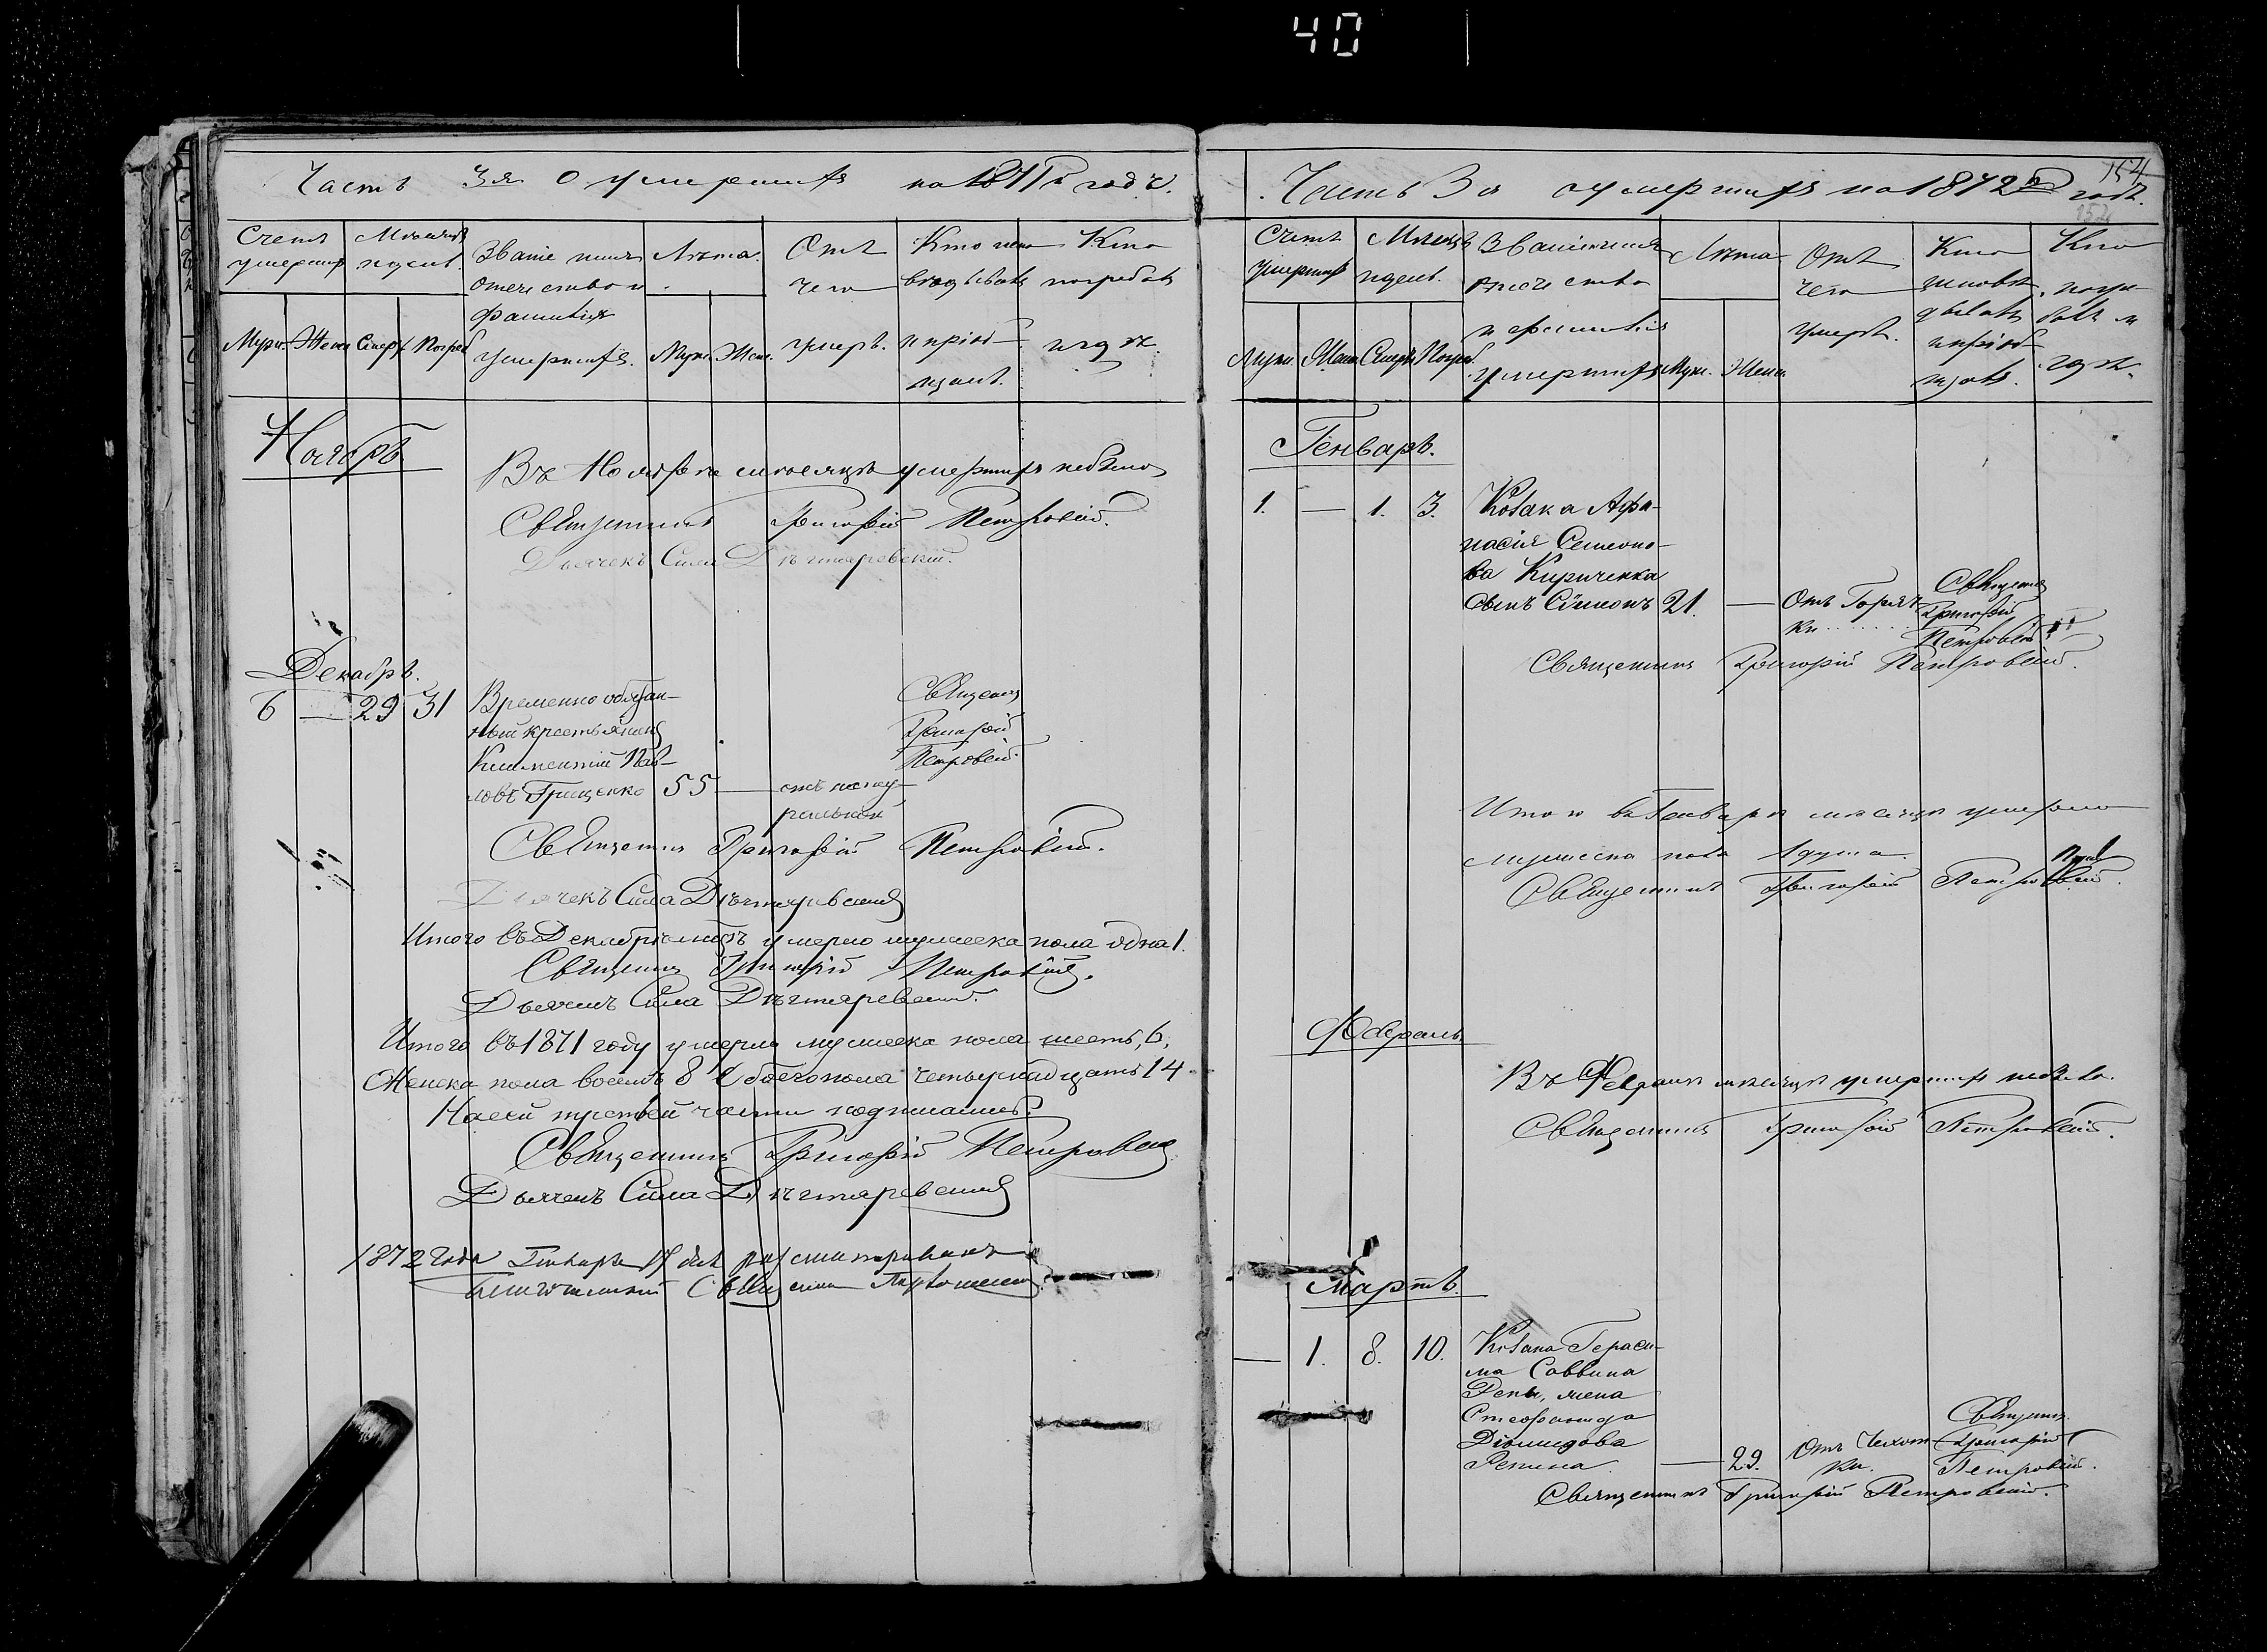 40
Часть 3я о умершихъ на 1871й годъ.
Счетъ умершихъ
Мѣсяцъ и день.
Званіе имя отечество и фамилія умершихъ.
Лѣта.
Отъ чего умеръ.
Кто исповѣдывалъ и пріобщалъ.
Кто погребалъ и гдѣ.
Муж. Жен. Смер. Погреб. Муж. Жен.
Ноябрь
Въ Ноябрѣ мѣсяцѣ умершихъ небыло
Священникъ Григорій Петровскій.
Дьячекъ Сила Дѣхтяревскій.
Декабрь.
6 — 29 31 Временно обязан-
ный крестьянинъ
Климентій Пав-
ловъ Гриценко 55 — отъ нату-
ральной
Священ.
Григорій
Петровскій.
Священникъ Григорій Петровскій.
Дьячекъ Сила Дѣхтяревскій
Итого въ Декабрѣ мцѣ умерло мужеска пола одна 1.
Священникъ Григорій Петровскій.
Дьячекъ Сила Дѣхтяревскій.
Итого въ 1871 году умерло мужеска пола шесть, 6,
Женска пола восемь 8 Обоего пола четырнадцать 14
Къ сей третьей части подписались:
Священникъ Григорій Петровскій
Дьячекъ Сила Дѣхтяревскій
1872 года Генваря 17 дня разсматривалъ
Благочинный Священникъ
154
Часть 3я о умершихъ на 1872й годъ.
Счетъ умершихъ
Мѣсяцъ и день.
Званіе имя отечество и фамилія умершихъ
Лѣта
Отъ чего умеръ.
Кто исповѣдывалъ и пріобщалъ.
Кто погребалъ и гдѣ.
Муж. Жен. Смер. Погреб. Муж. Жен.
Генварь.
1. — 1. 3. Козака Афа-
насія Семено-
ва Кириченка
сынъ Симеонъ 21. — Отъ Горяч-
ки
Священ.
Григорій
Петровскій
Священникъ Григорій Петровскій.
Итого въ Генварѣ мѣсяцѣ умерло
мужеска пола 1 душа.
Священникъ Григорій Петровскій.
Февраль
Въ Февралѣ мѣсяцѣ умершихъ небыло.
Священникъ Григорій Петровскій.
Мартъ.
— 1. 8. 10. Козака Гераси-
ма Саввина
Репы, жена
Стефанида
Діомидова
Репина. — 29. Отъ Чахот-
ки.
Священник
Григорій
Петровскій.
Священникъ Григорій Петровскій.